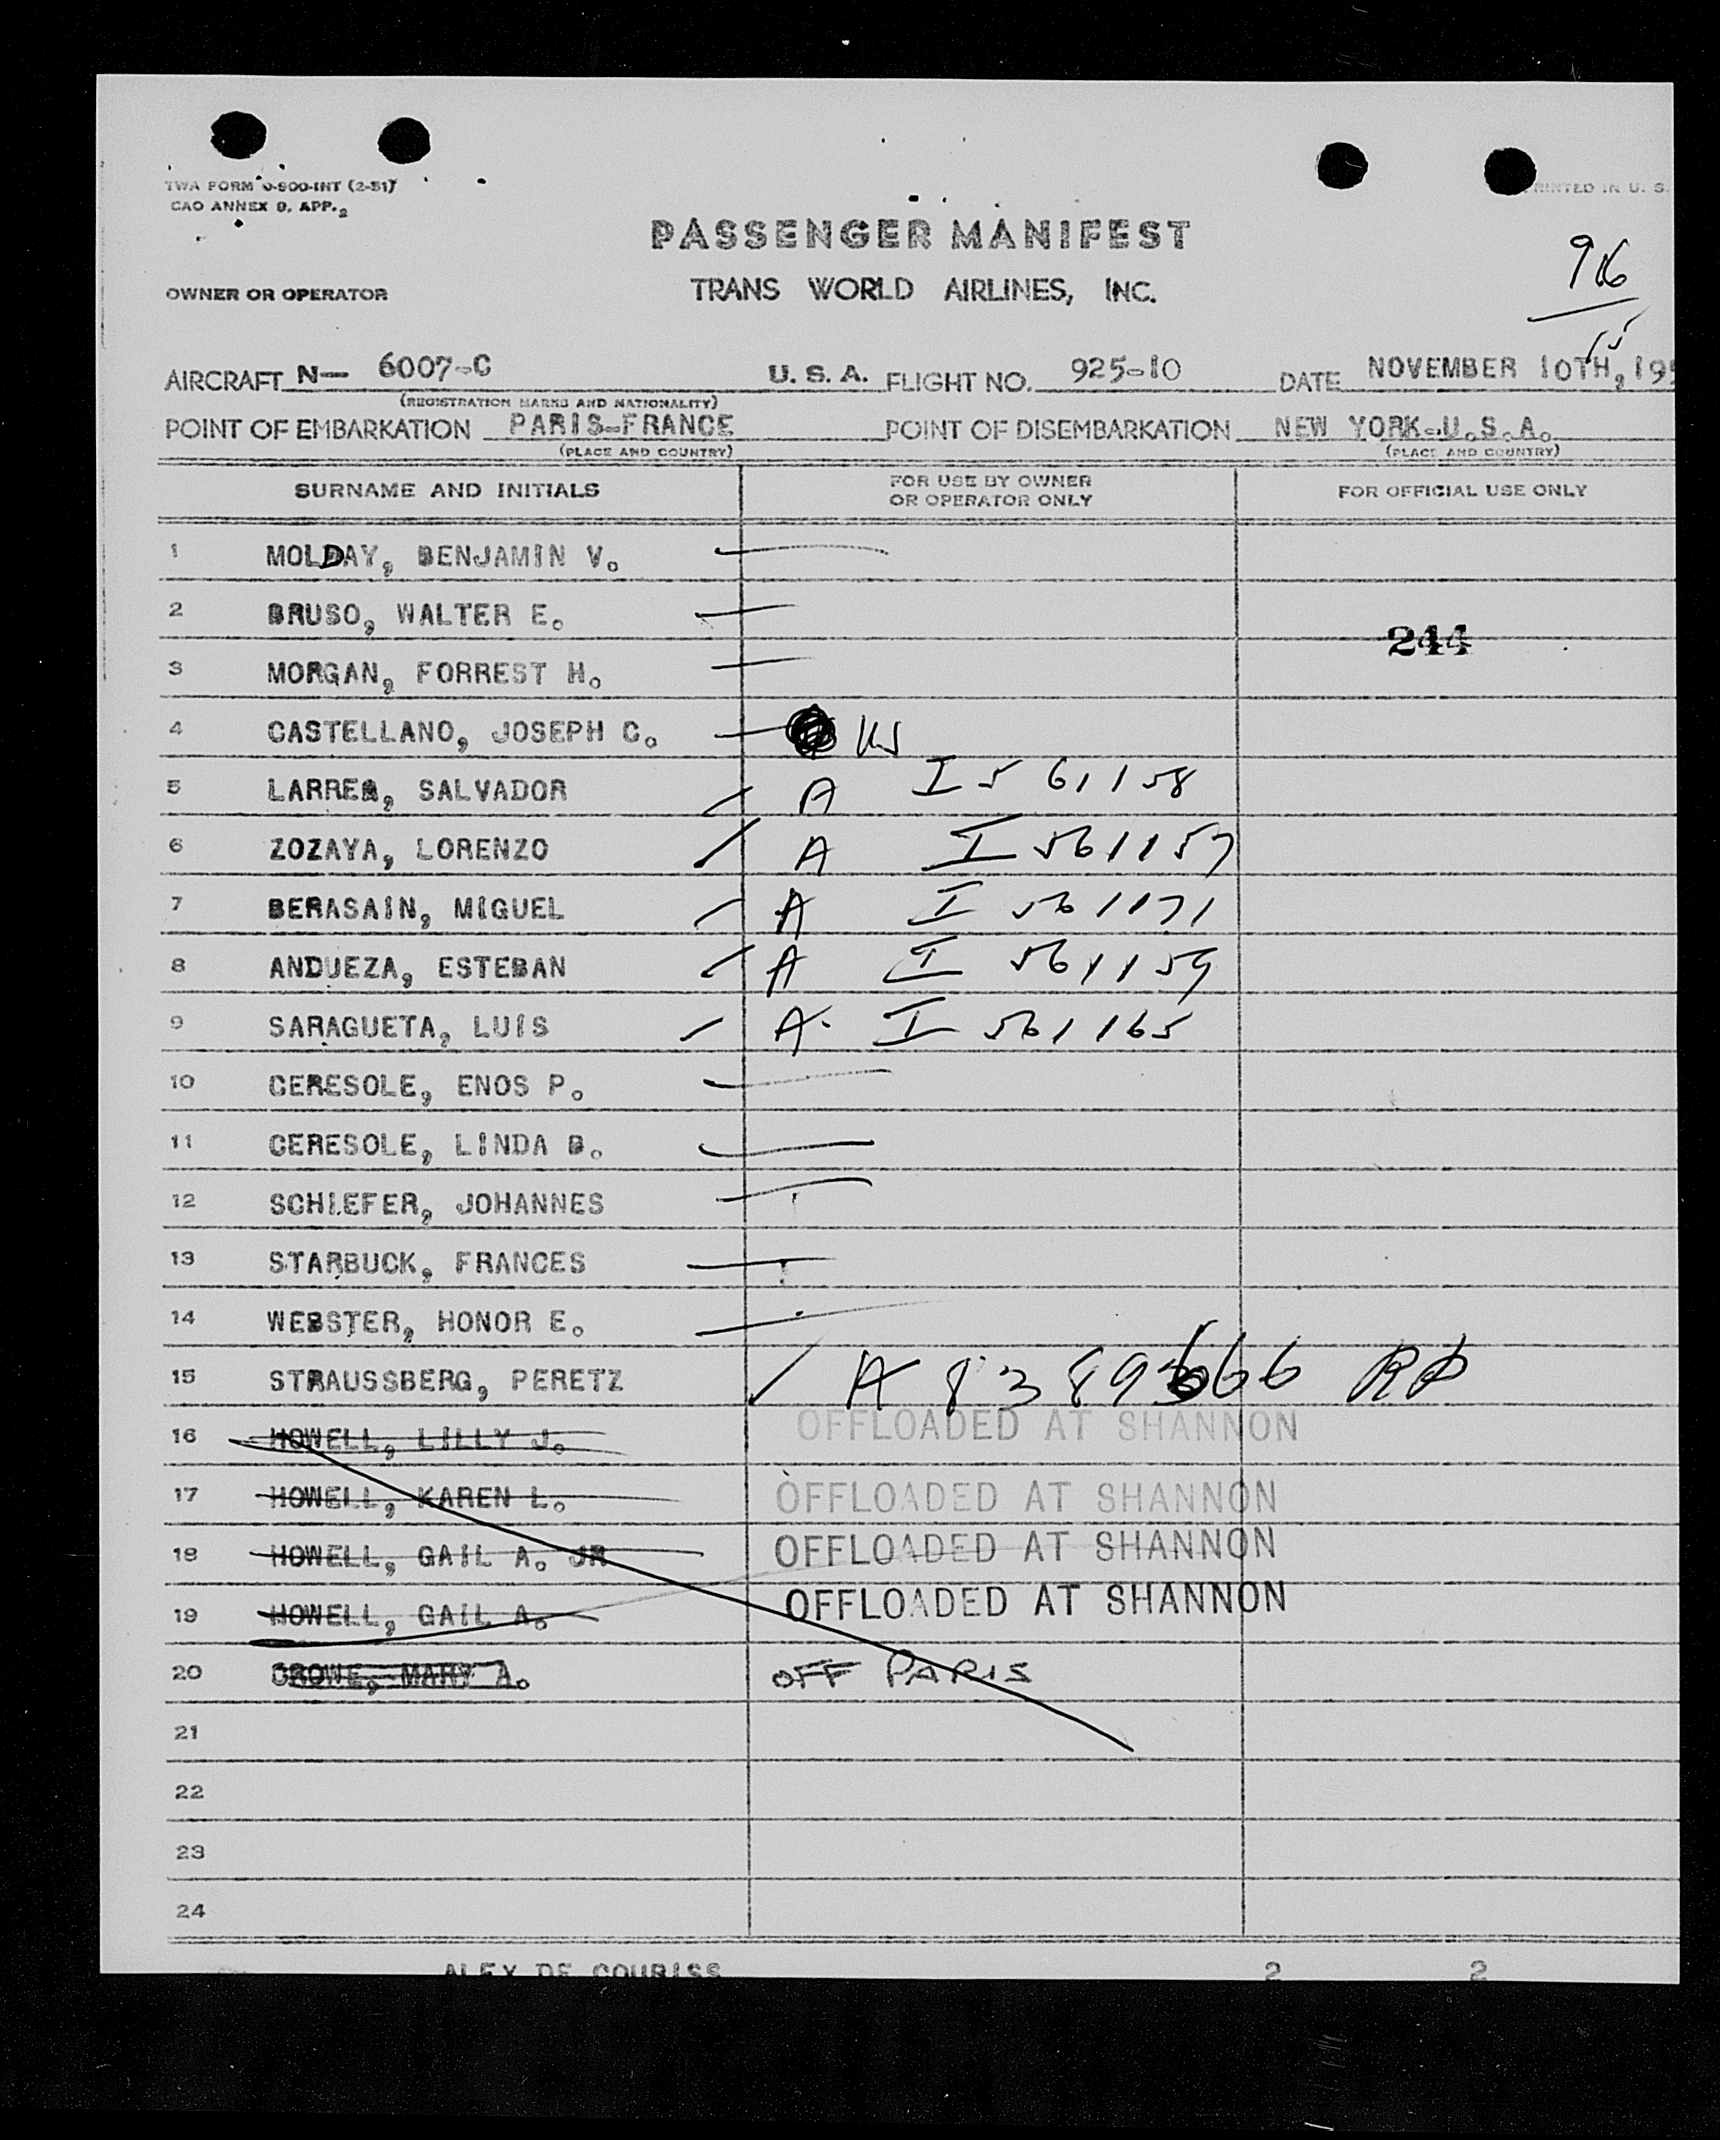 TWA FORM 0-800-INT (2-51)
CAO ANNEX 9, APP. 2
PRINTED IN U. S.
PASSENGER MANIFEST
916
15
OWNER OR OPERATOR
TRANS WORLD AIRLINES, INC.
AIRCRAFT N- 6007-C U. S. A. FLIGHT NO. 925-10 DATE NOVEMBER 10TH, 195
(REGISTRATION MARKS AND NATIONALITY)
POINT OF EMBARKATION PARIS-FRANCE POINT OF DISEMBARKATION NEW YORK-U.S.A.
(PLACE AND COUNTRY) (PLACE AND COUNTRY)
SURNAME AND INITIALS FOR USE BY OWNER OR OPERATOR ONLY FOR OFFICIAL USE ONLY
1 MOLDAY, BENJAMIN V.
2 BRUSO, WALTER E.
244
3 MORGAN, FORREST H.
4 CASTELLANO, JOSEPH C. US
5 LARREA, SALVADOR A I 561158
6 ZOZAYA, LORENZO A I 561157
7 BERASAIN, MIGUEL A I 561171
8 ANDUEZA, ESTEBAN A I 561159
9 SARAGUETA, LUIS A. I 561165
10 CERESOLE, ENOS P.
11 CERESOLE, LINDA B.
12 SCHIEFER, JOHANNES
13 STARBUCK, FRANCES
14 WEBSTER, HONOR E.
15 STRAUSSBERG, PERETZ A 8389666 RP
16 HOWELL, LILLY J. OFFLOADED AT SHANNON
17 HOWELL, KAREN L. OFFLOADED AT SHANNON
18 HOWELL, GAIL A. JR OFFLOADED AT SHANNON
19 HOWELL, GAIL A. OFFLOADED AT SHANNON
20 CROWE, MARY A. OFF PARIS
21
22
23
24
ALEX DE COURISS 2 2